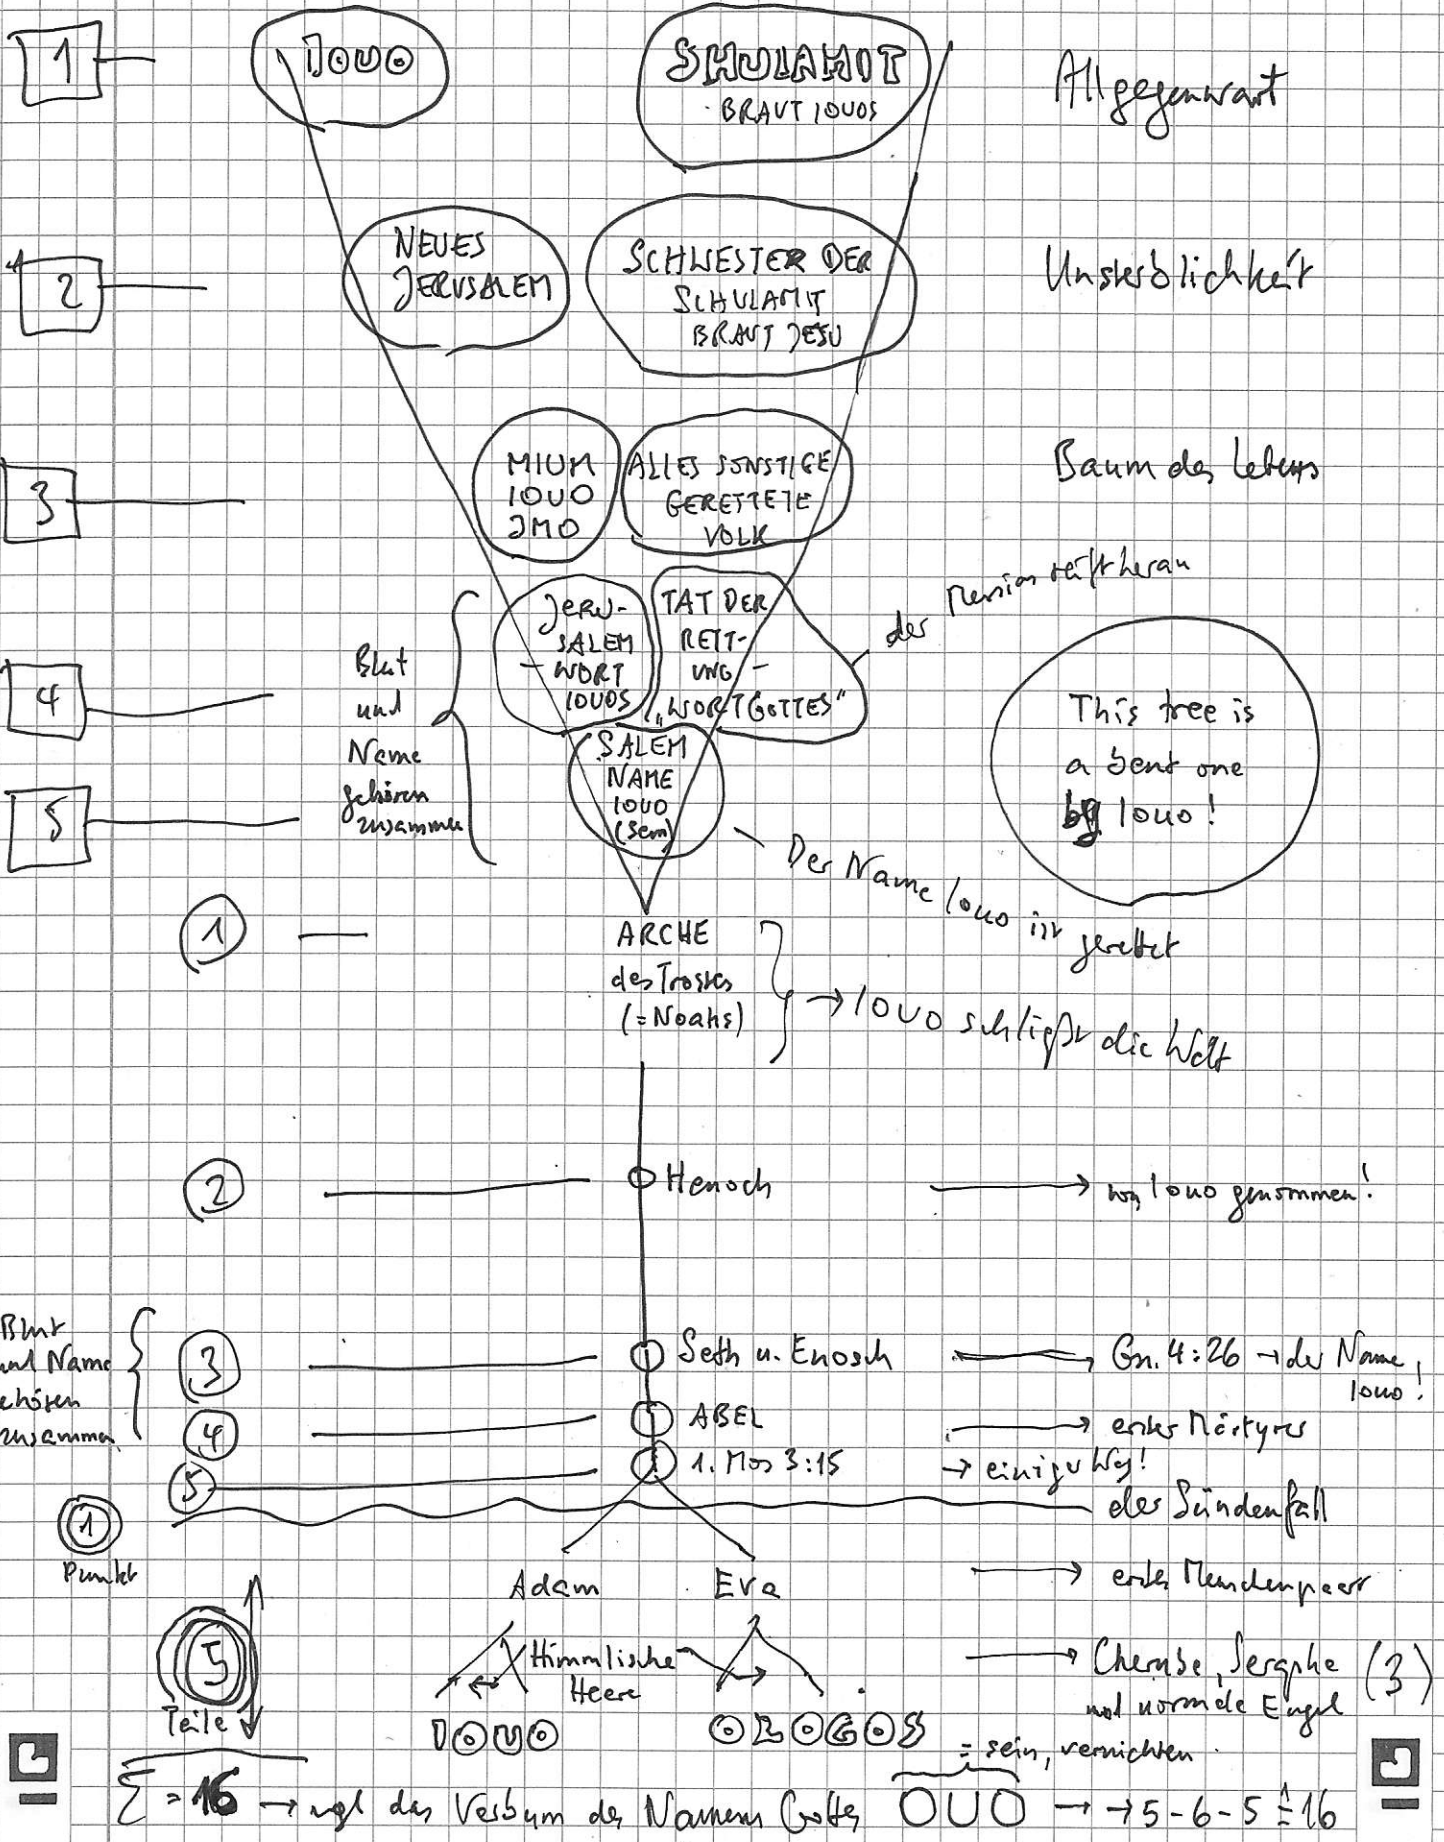 1 IOUO SHULAMIT Allgegenwart
BRAUT IOUOS
2 NEUES JERUSALEM SCHWESTER DER SCHULAMIT BRAUT JESU Unsterblichkeit
3 MIUM IOUO JMO ALLES SONSTIGE GERETTETE VOLK Baum des Lebens
der Messias reift heran
4 Blut und Name gehören zusammen JERU-
SALEM
- WORT
IOUOS
TAT DER
RETT-
UNG -
„WORT GOTTES"
This tree is
a bent one
by IOUO!
5 SALEM
NAME
IOUO
(Sem)
Der Name IOUO ist gerettet
1 ARCHE
des Trostes
(=Noahs)
→ IOUO schließt die Welt
2 Henoch → von IOUO genommen!
Blut
und Name
gehören
zusammen
3 Seth u. Enosch → Gn. 4:26 → der Name
IOUO!
4 ABEL → erster Märtyrer
5 1. Mos 3:15 → einziger Weg!
1 der Sündenfall
Punkt
Adam Eva → erstes Menschenpaar
5 Himmlische
Heere
→ Cherube, Seraphe (3)
und normale Engel
Teile
IOUO OLOGOS
= sein, vernichten
Σ = 16 → vgl das Verbum des Namens Gottes OUO → → 5-6-5 ≙ 16